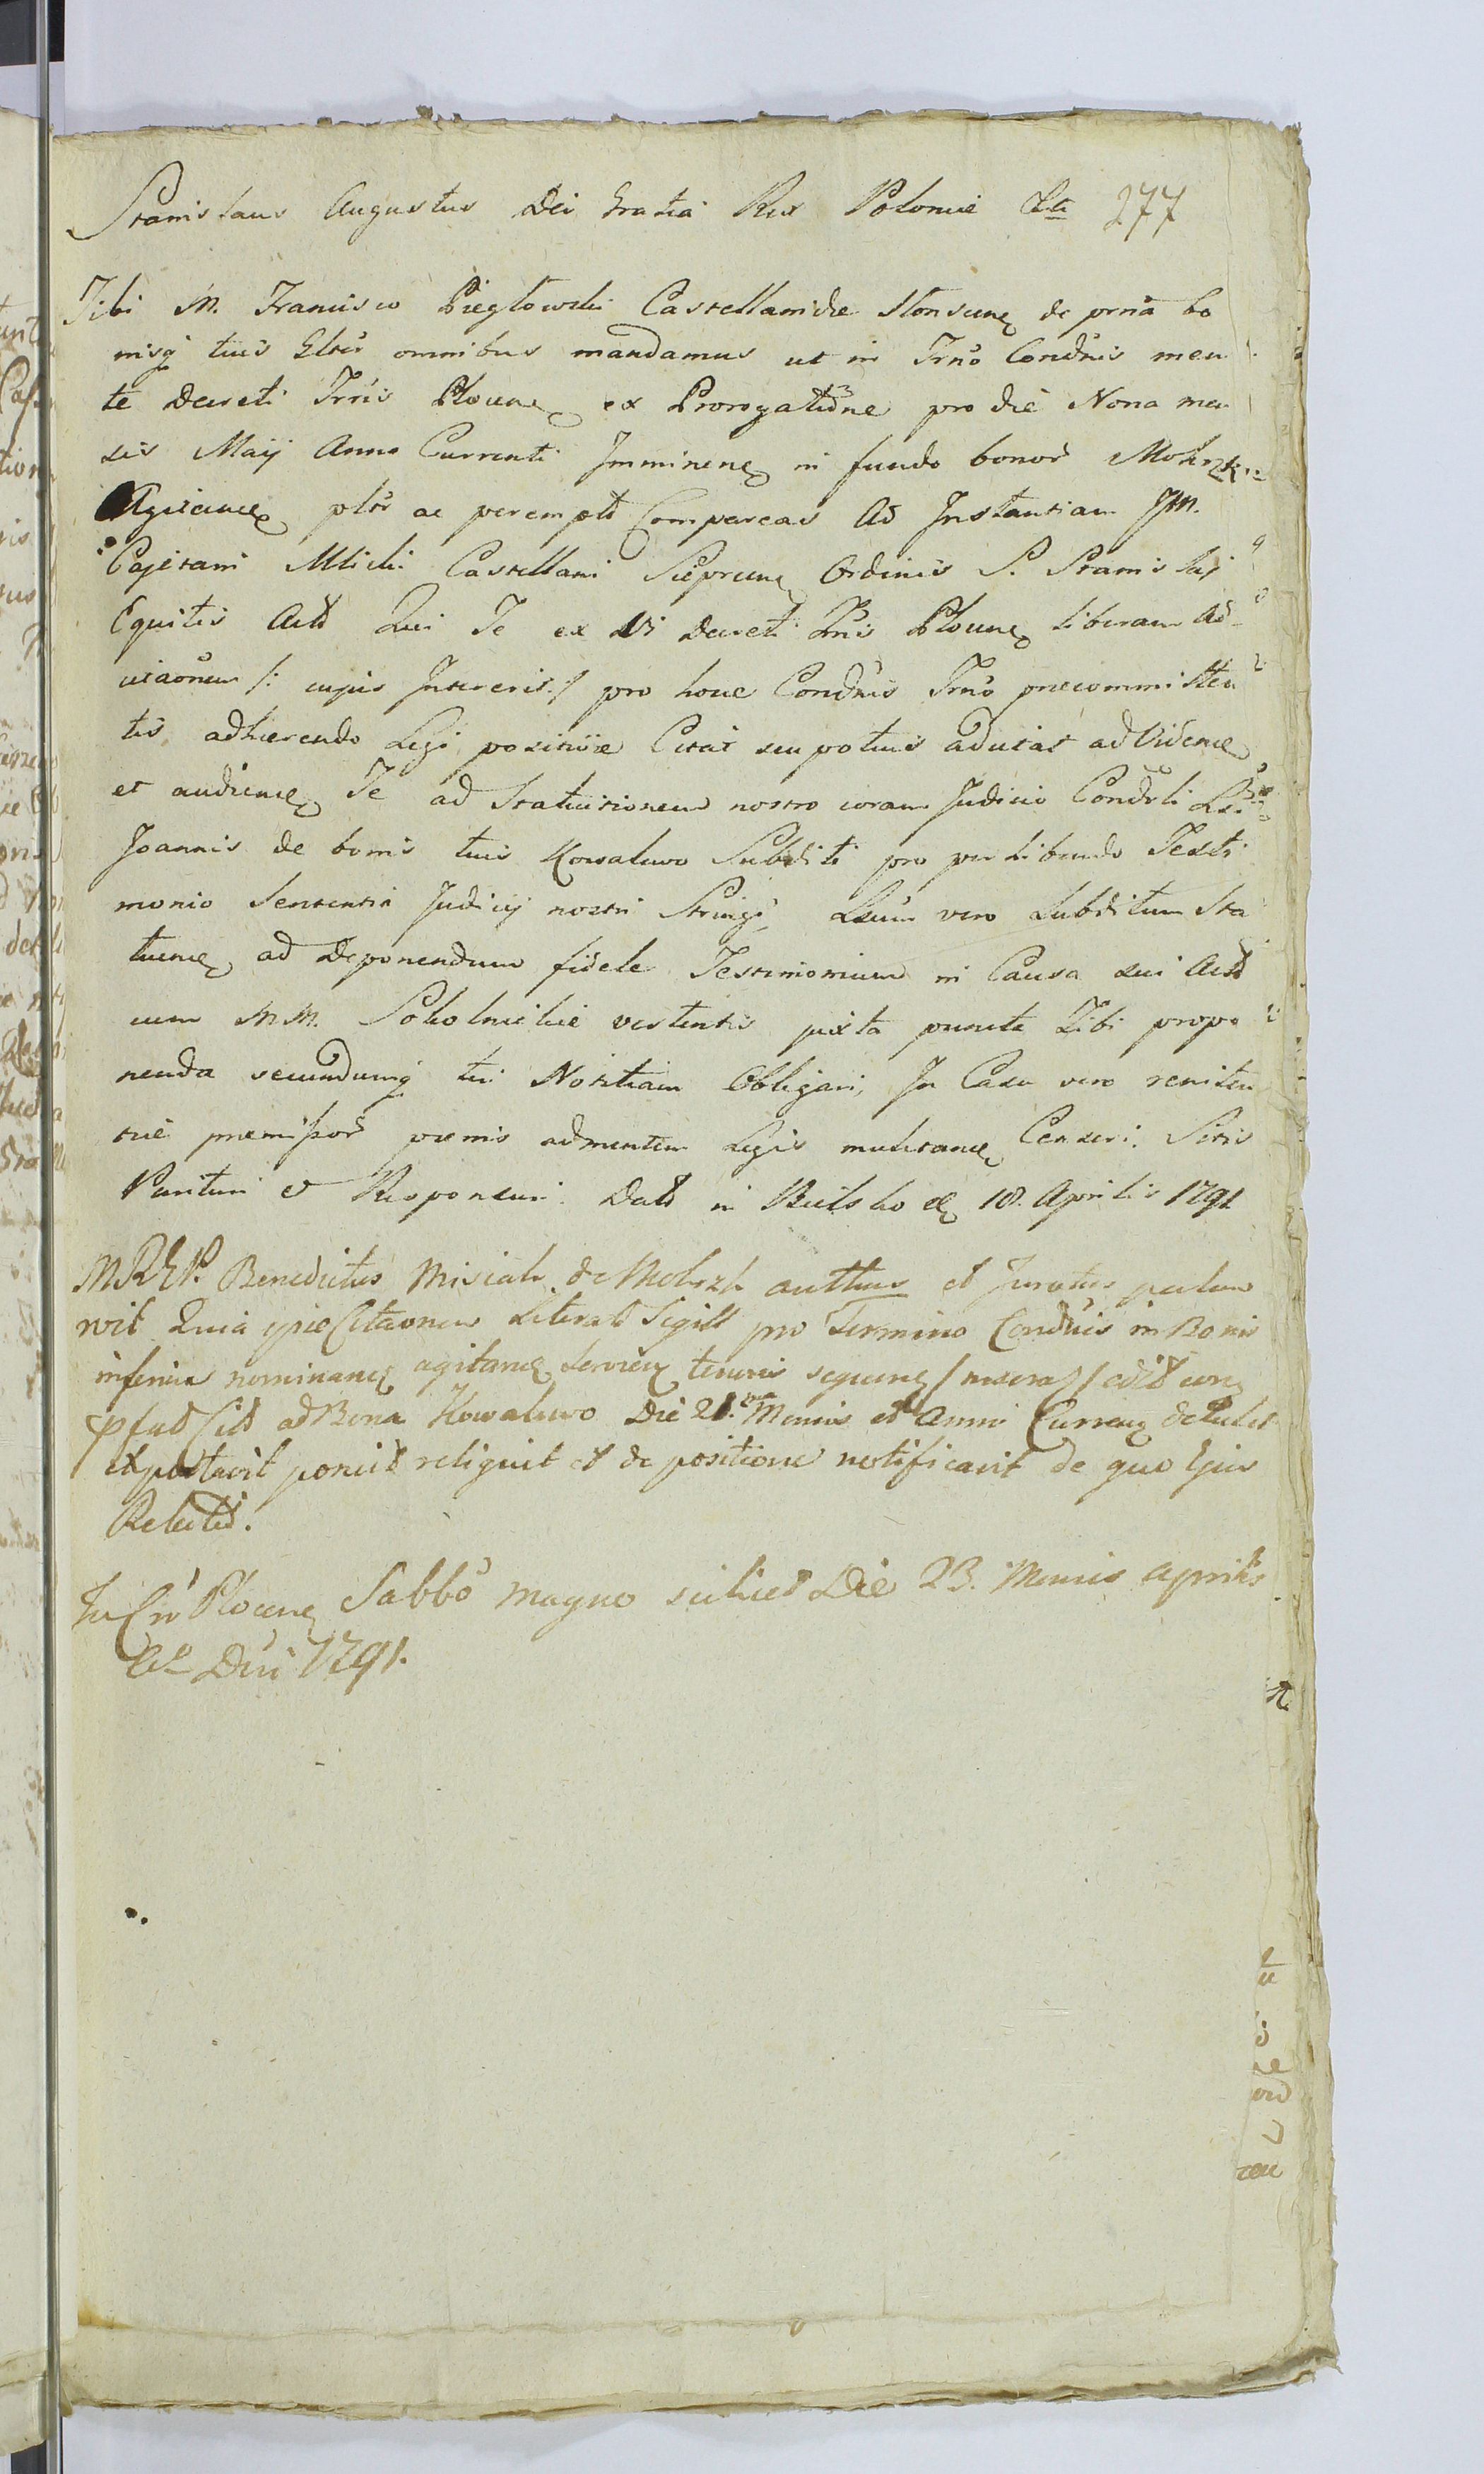 Stanislaus Augustus Dei Gratia Rex Polonie &tc 277
Tibi M. Francisco Piegłowski Castellanidæ Słonscens de prna bo
nisq tuis Gltr omnibus mandamus ut in Trno Condnis men
te Decreti Trris Plocens ex Prorogatione pro die Nona men
sis Maij Anno Currenti Imminens in fundo bonor Mokrzk
Agitands pltr ac perempt Compareas Ad Instantiam JM.
Cajetani Mlicki Castellani Sieprcens Ordinis S. Stanislaj
Equitis Act Qui Te ex Vi Decreti Trris Plocens liberam Ad
citaonem /: cujus Intereris :/ pro hocce Condnis Trno precommitten
tis adhærendo Legi positivæ Citat seu potius adcitat ad Videnc
et audienc Te ad Statuitionem nostro coram Judicio Condrli
Joannis de bonis tuis Kowalewo Subditi pro perhibendo Testi
monio Sententia Judicij nostri Stringi, vero Subditum Sta
tuenc ad Deponendum fidele Testimonium in Causa sui Act
cum MM. Sokolnickie vertentis juxta puncta Tibi propo
nenda secundumq tui Notitiam Obligari, In Casu vero reniten
tiæ premissor pænis admentem Legis mulctanc Censeri. Sitis
Parituri et Responsuri. Dat in Bielsko d 18. Aprilis 1791
MREP. Benedictus Misiak de Mokrzk autthus et Juratus palam
rvit Quia ipse Citaonem Literat Sigill pro Termino Condnis in Bonis
inferius nominanc agitanc Serviens tenoris sequens /:
Cit ad Bona Kowalewo Die 21. Mensis et Anni Currens detulit
portavit ponuit reliquit et de positione notificavit de quo Ejus
Relatio.
In Plocens Sabbo magno scilicet Die 23. Mensis Aprilis
Ao Dni 1791.